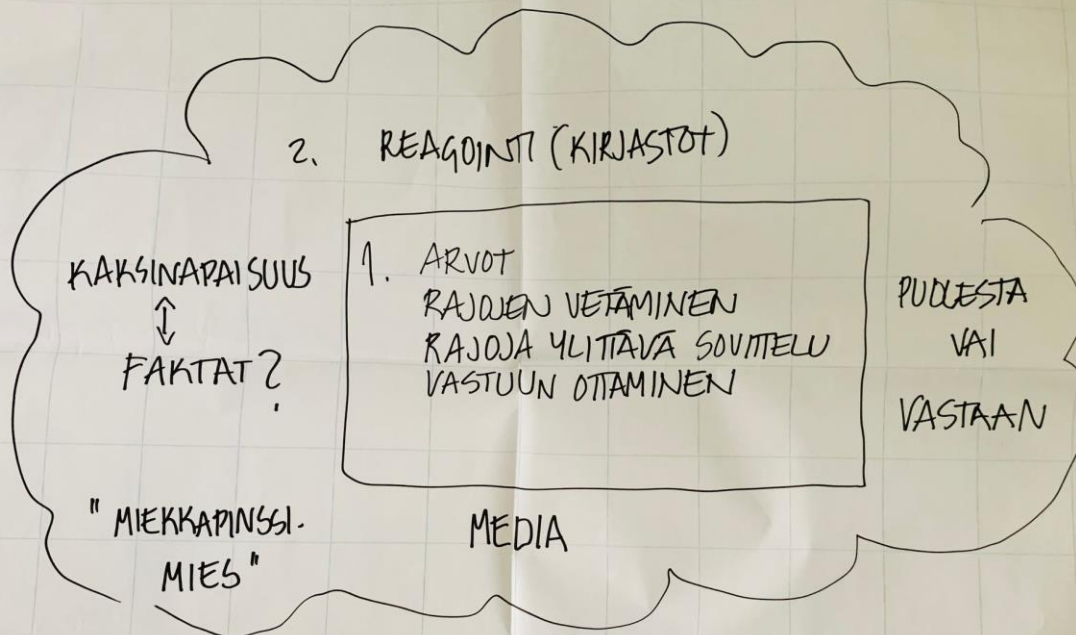 2. REAGOINTI (KIRJASTOT)
KAKSINAPAISUUS
↕
FAKTAT?
1. ARVOT
RAJOJEN VETÄMINEN
RAJOJA YLITTÄVÄ SOVITTELU
VASTUUN OTTAMINEN
PUOLESTA
VAI
VASTAAN
"MIEKKAPINSSI-
MIES"
MEDIA